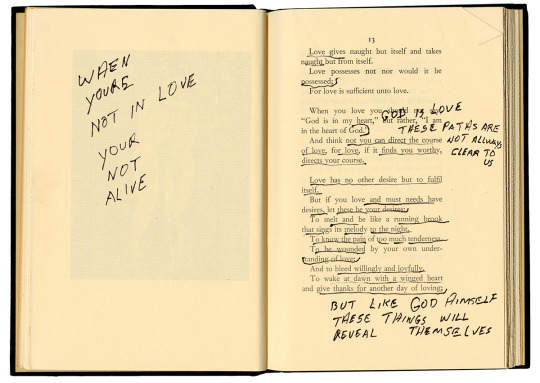 WHEN
YOURE
NOT IN LOVE
YOUR
NOT
ALIVE
13
Love gives naught but itself and takes
naught but from itself.
Love possesses not nor would it be
possessed;
For love is sufficient unto love.
When you love you should not say
"God is in my heart," but rather, "I am
in the heart of God."
GOD IS LOVE
THESE PATHS ARE
NOT ALLWAYS
CLEAR TO
US
And think not you can direct the course
of love, for love, if it finds you worthy,
directs your course.
Love has no other desire but to fulfil
itself.
But if you love and must needs have
desires, let these be your desires:
To melt and be like a running brook
that sings its melody to the night.
To know the pain of too much tenderness.
To be wounded by your own under-
standing of love;
And to bleed willingly and joyfully.
To wake at dawn with a winged heart
and give thanks for another day of loving;
BUT LIKE GOD HIMSELF
THESE THINGS WILL
REVEAL THEMSELVES